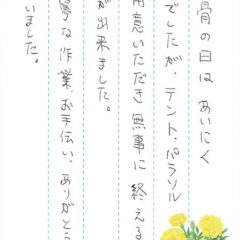 骨の日は あいにく
でしたが、テント、パラソル
用意いただき 無事に 終える
が出来ました。
寧な作業、お手伝い、ありがとう
いました。